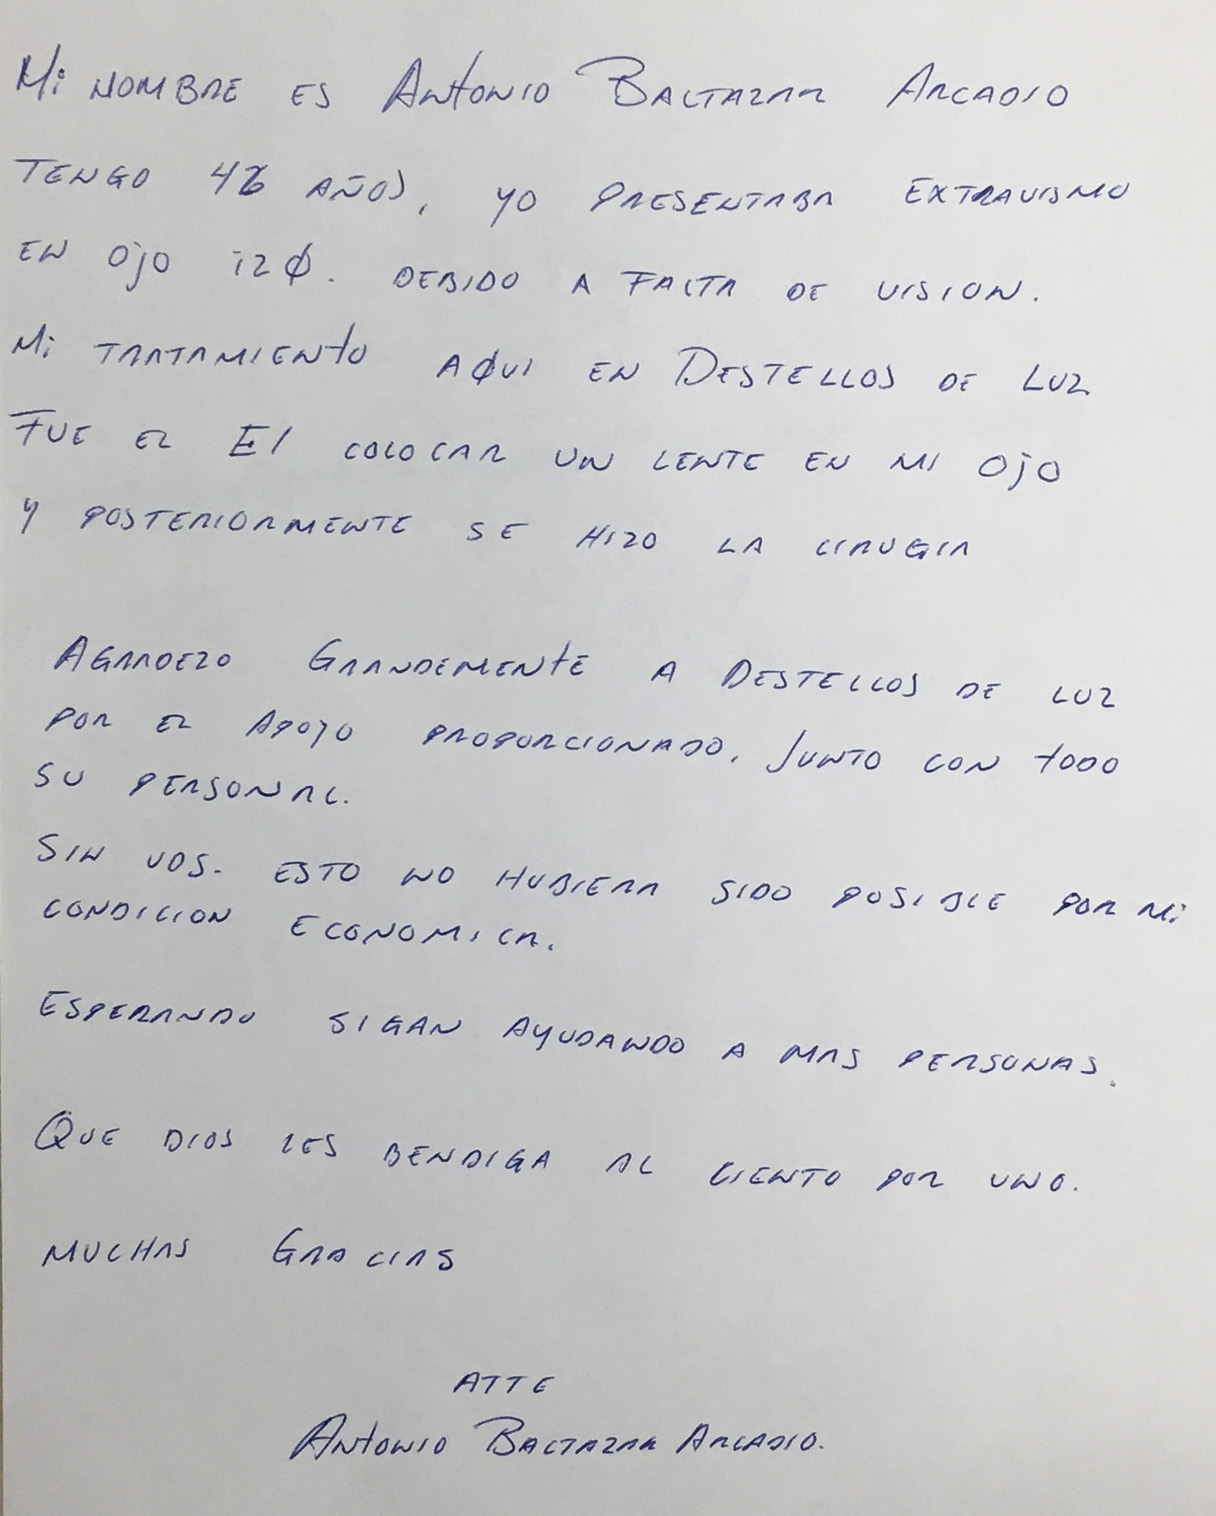 Mi NOMBRE ES ANTONIO BALTAZAR ARCADIO
TENGO 46 AÑOS, YO PRESENTABA EXTRAVISMO
EN OJO IZQ. DEBIDO A FALTA DE VISION.
Mi TRATAMIENTO AQUI EN DESTELLOS DE LUZ
FUE EL El COLOCAR UN LENTE EN MI OJO
Y POSTERIORMENTE SE HIZO LA CIRUGIA
AGRADEZO GRANDEMENTE A DESTELLOS DE LUZ
POR EL APOYO PROPORCIONADO. JUNTO CON TODO
SU PERSONAL.
SIN UDS. ESTO NO HUBIERA SIDO POSIBLE POR Mi
CONDICION ECONOMICA.
ESPERANDO SIGAN AYUDANDO A MAS PERSONAS.
QUE DIOS LES BENDIGA AL CIENTO POR UNO.
MUCHAS GRACIAS
ATTE
ANTONIO BALTAZAR ARCADIO.